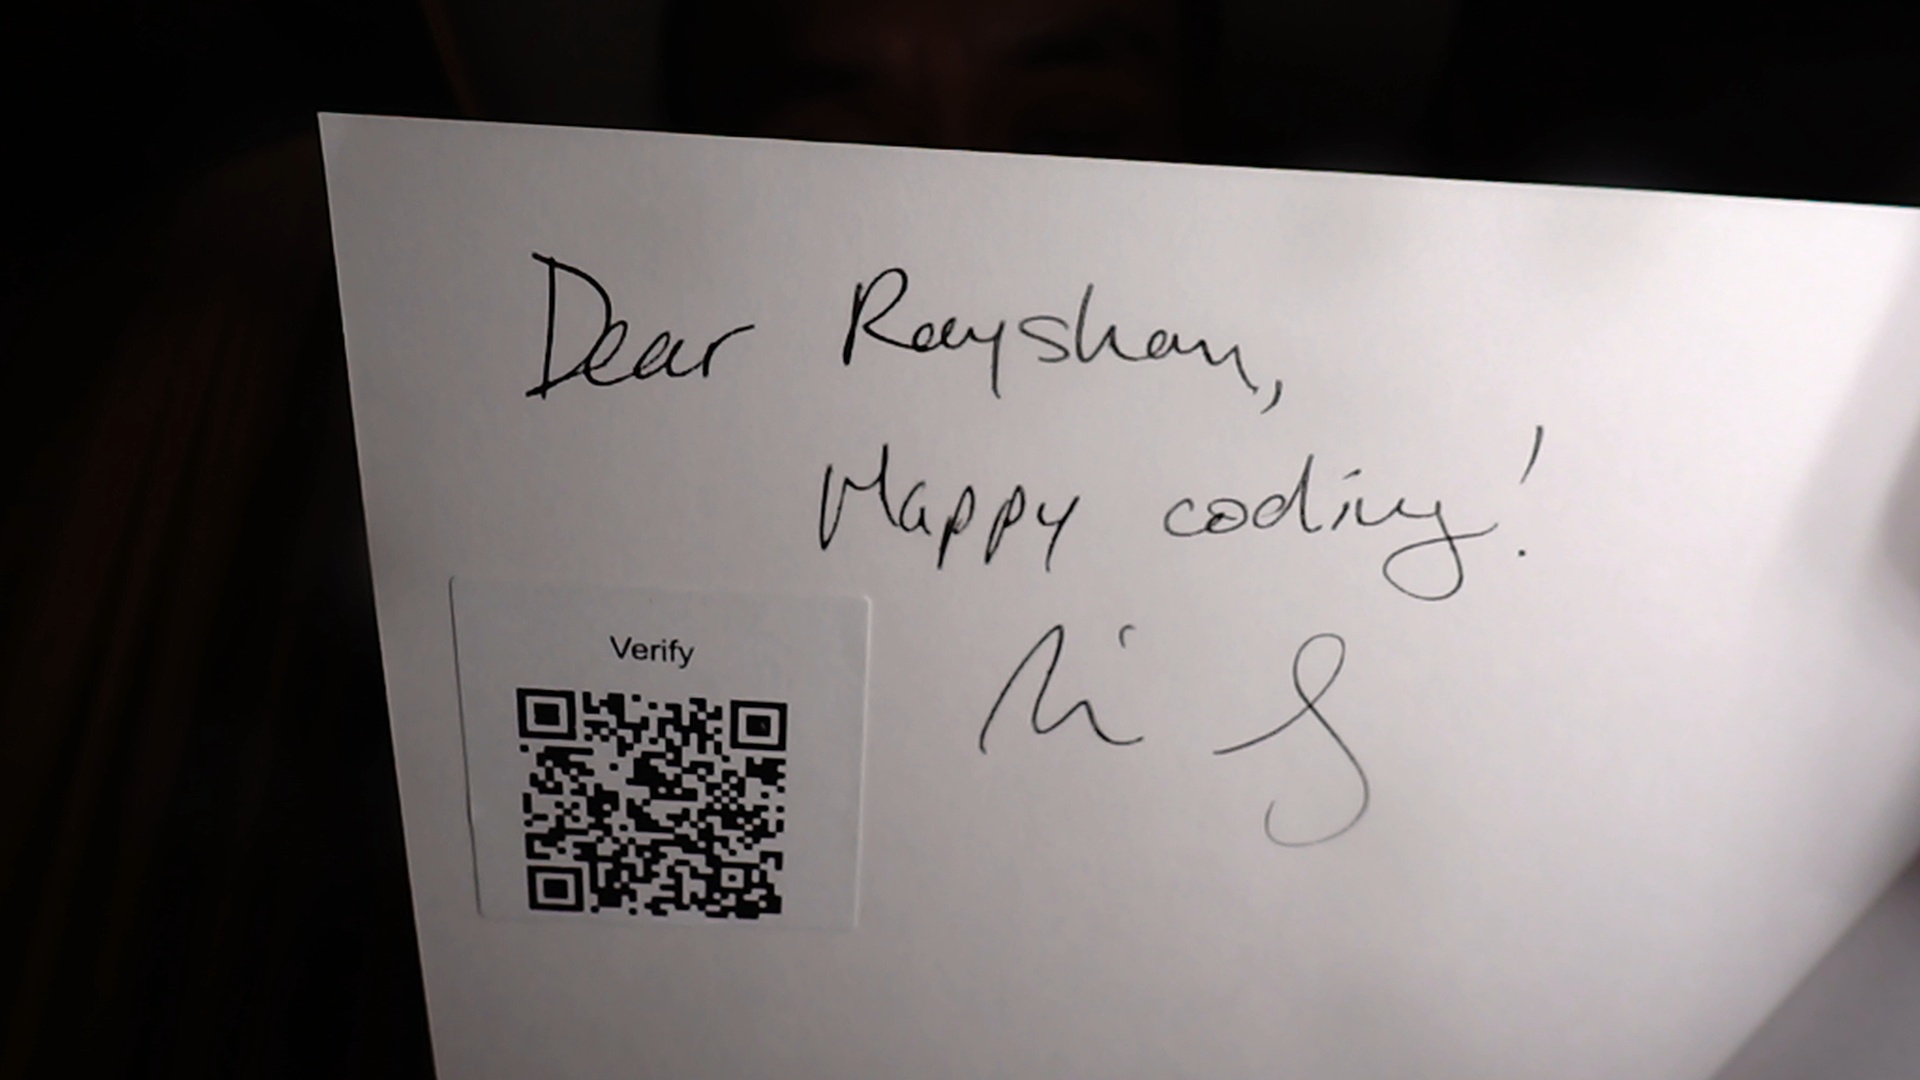 Dear Rayshan,
Happy coding!
Verify